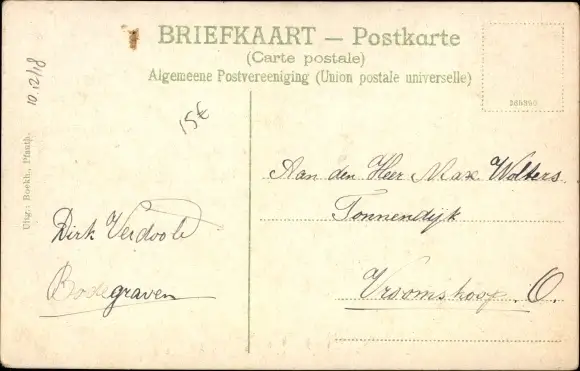 BRIEFKAART — Postkarte
(Carte postale)
Algemeene Postvereeniging (Union postale universelle)
15€
Uitg.: Boekh., Pfauth.
Aan den Heer Max Wolters
Tonnendijk
Vroomshoop. O.
Dirk Verdoold
Bodegraven